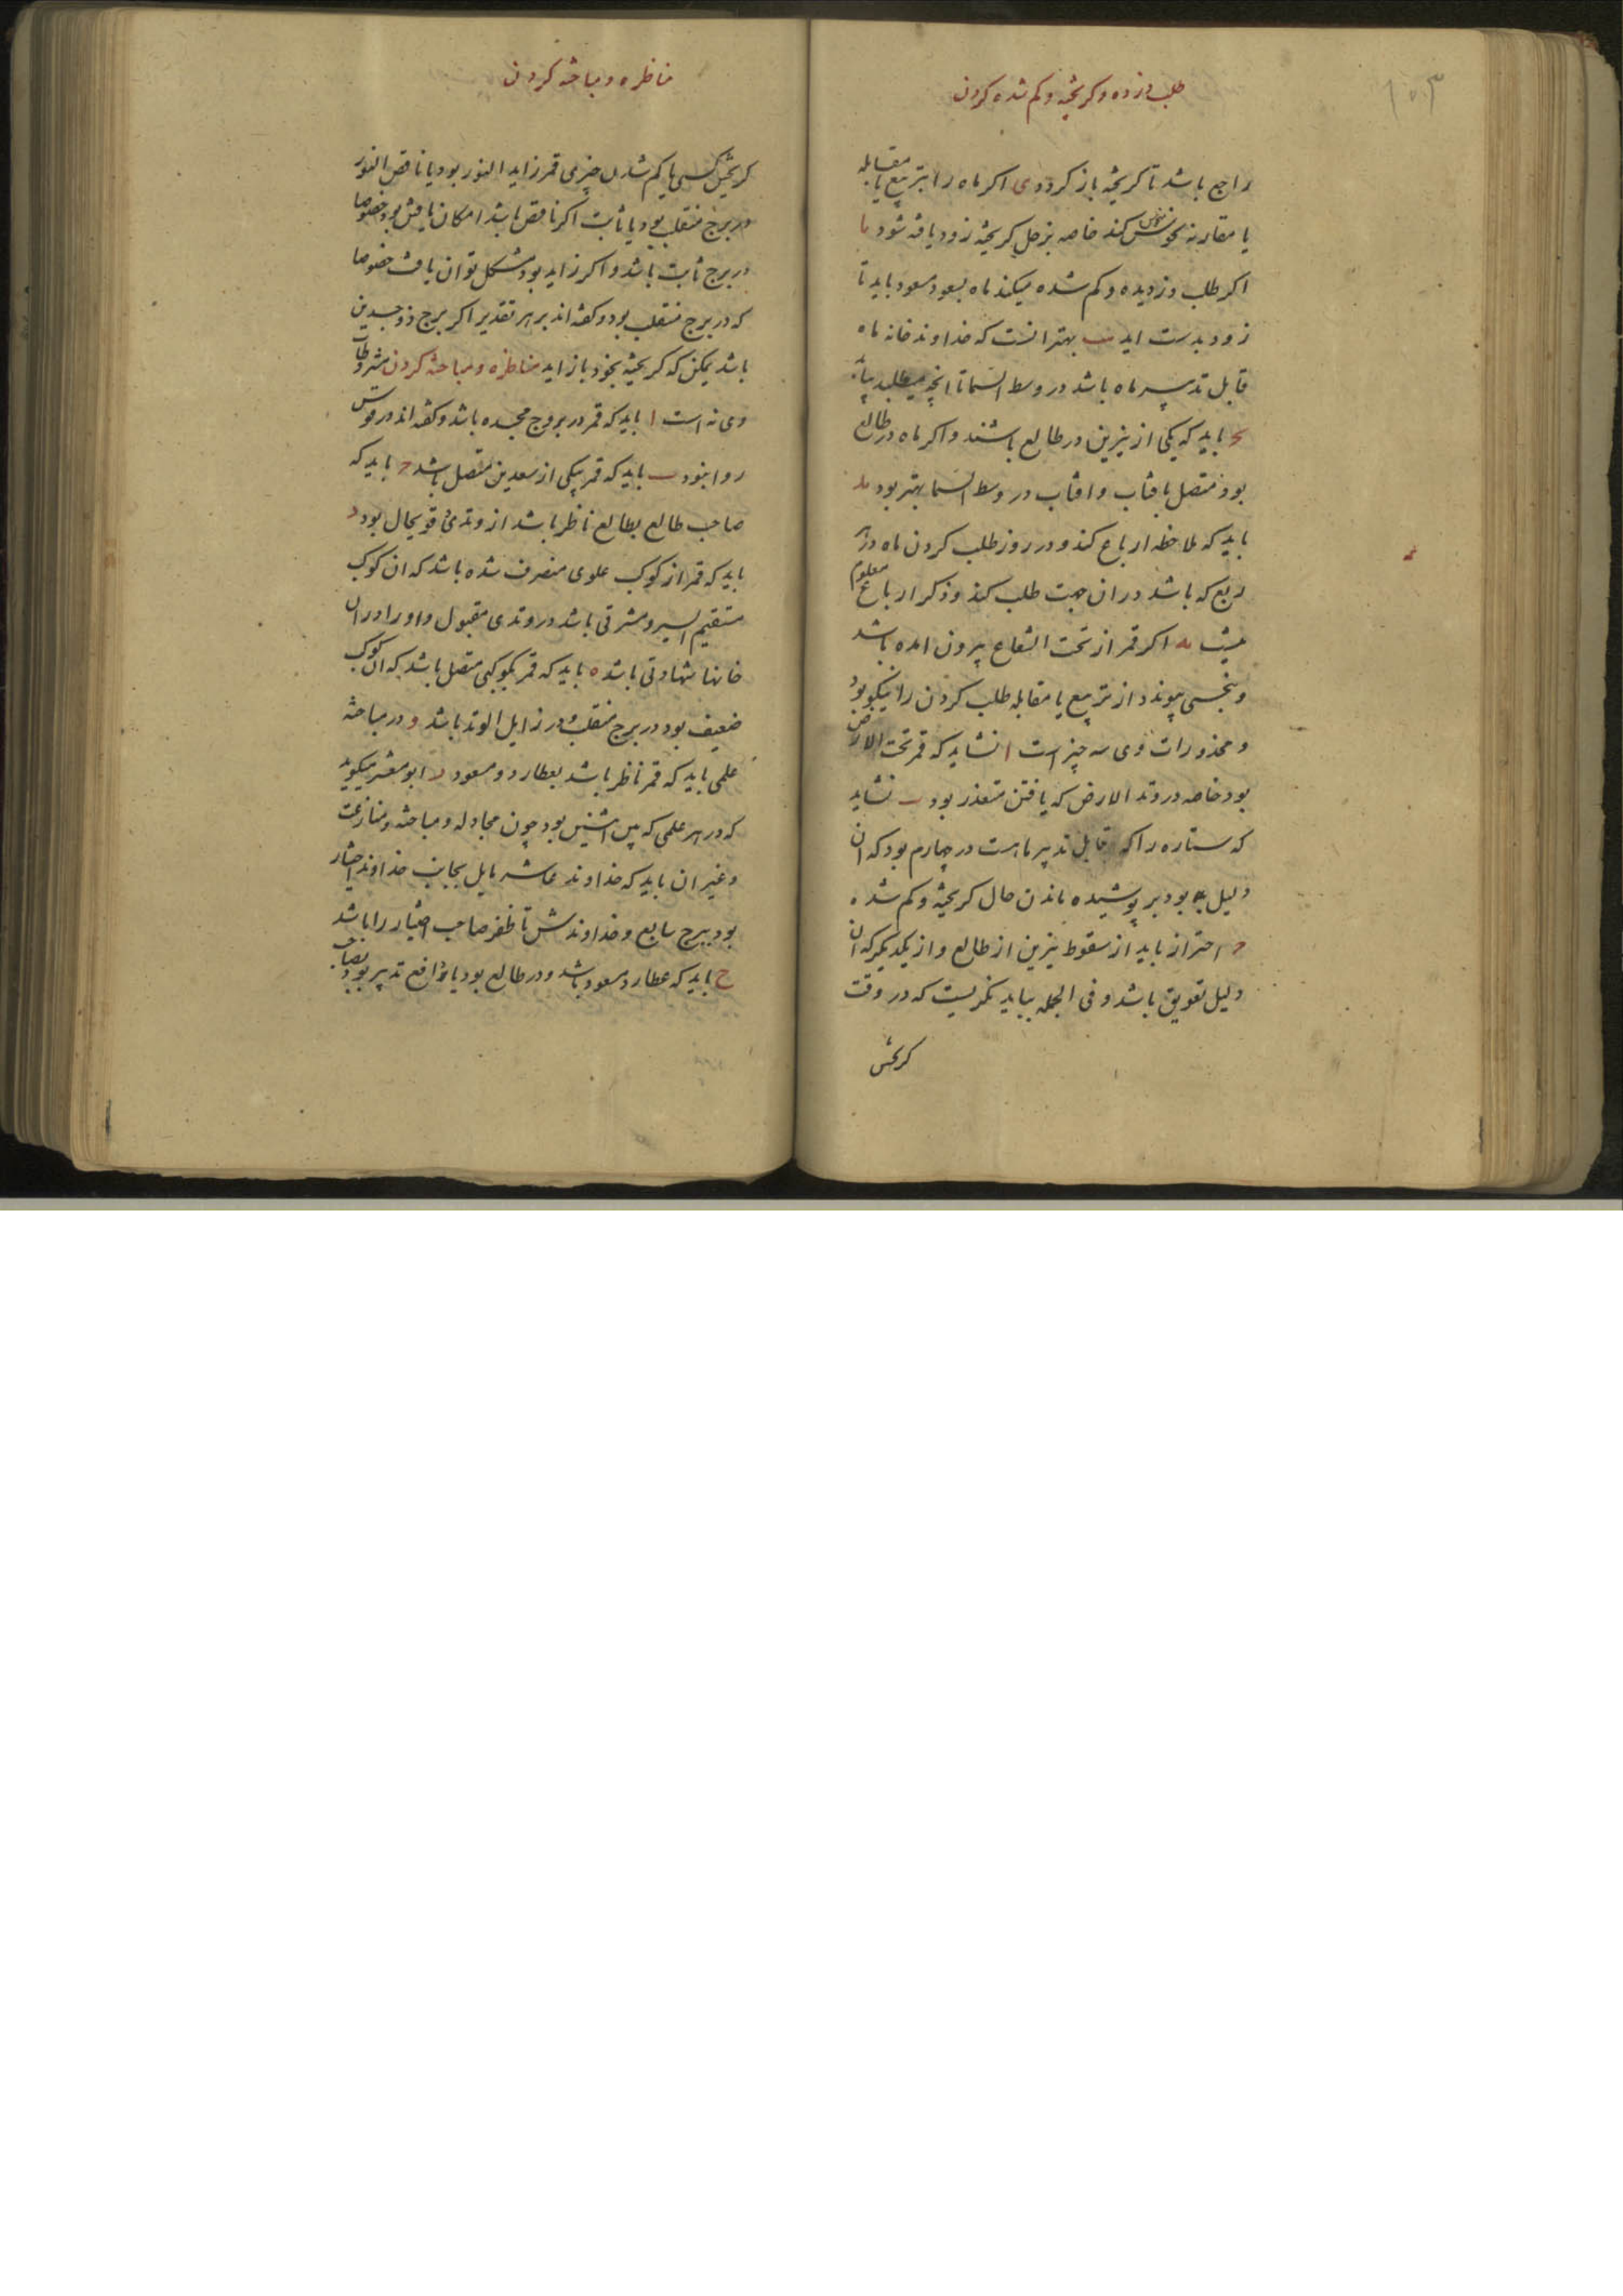 ۱۵۳
طلب دزده و کریخته و کم شده کردن
راجع باشد تا کریخته باز کردد ی اکر ماه را بتربیع یا مقابله
یا مقارنه نحوس کند خاصه بزحل کریخته زود یافته شود یا
اکر طلب دزدیده و کم شده میکند ماه بسعود مسعود باید تا
زود بدست اید یب بهتر انست که خداوند خانه ماه
قابل تدبیر ماه باشد در وسط السما تا انچه میطلبد بیابد
یج باید که یکی از نیرین در طالع باشند و اکر ماه در طالع
بود متصل بافتاب و افتاب در وسط السما بهتر بود ید
باید که ملاحظه ارباع کند و در روز طلب کردن ماه در هر
ربع که باشد در ان جهت طلب کند و ذکر ارباع معلوم
یه اکر قمر از تحت الشعاع بیرون امده باشد
و بنحسی پیوندد از تربیع یا مقابله طلب کردن را نیکو بود
و محذورات وی سه چیز است ا نشاید که قمر تحت الارض
بود خاصه در وتد الارض که یافتن متعذر بود ب نشاید
که ستاره را که قابل تدبیر ماهست در چهارم بود که ان
دلیل بود بر پوشیده ماندن حال کریخته و کم شده
ج احتراز باید از سقوط نیرین از طالع و از یکدیکر که ان
دلیل تعویق باشد و فی الجمله بباید نکریست که در وقت
کریختن
مناظره و مباحثه کردن
کریختن کسی یا کم شدن چیزی قمر زاید النور بود یا ناقص النور
در برج منقلب بود یا ثابت اکر ناقص باشد امکان یافتن بود خصوصا
در برج ثابت باشد و اکر زاید بود مشکل توان یافت خصوصا
که در برج منقلب بود و کفته اند بر هر تقدیر اکر برج ذو جسدین
باشد یمکن که کریخته بخود باز اید مناظره و مباحثه کردن مشروطات
وی نه است ا باید که قمر در بروج مجسده باشد و کفته اند در قوس
روا نبود ب باید که قمر بیکی از سعدین متصل باشد ج باید که
صاحب طالع بطالع ناظر باشد از وتدی قویحال بود د
باید که قمر از کوکب علوی منصرف شده باشد که ان کوکب
مستقیم السیر و مشرقی باشد در وتدی مقبول و او را در ان
خانها شهادتی باشد ه باید که قمر بکوکبی متصل باشد که ان کوکب
ضعیف بود در برج منقلب و در زایل الوتد باشد و در مباحثه
علمی باید که قمر ناظر باشد بعطارد و مسعود ز ابو معشر میکوید
که در هر علمی که بین اثنین بود چون مجادله و مباحثه و منازعت
و غیر ان باید که خداوند عاشر مایل بجانب خداوند اختیار
بود ببرج سابع و خداوندش تا ظفر صاحب اختیار را باشد
ح باید که عطارد مسعود باشد و در طالع بود یا دافع تدبیر بود بصاحب